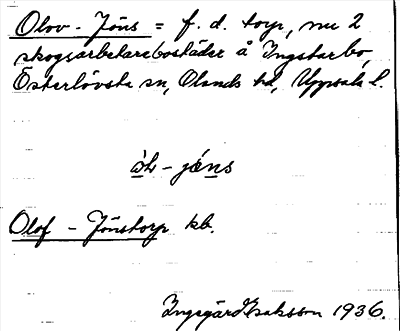 Olov-Jöns = f. d. torp, nu 2
skogsarbetarebostäder å Ingstarbo,
Österlövsta sn, Olands hd, Uppsala l.
òL-jæns
Olof-Jönstorp kb.
Ingegärd Isaksson 1936.